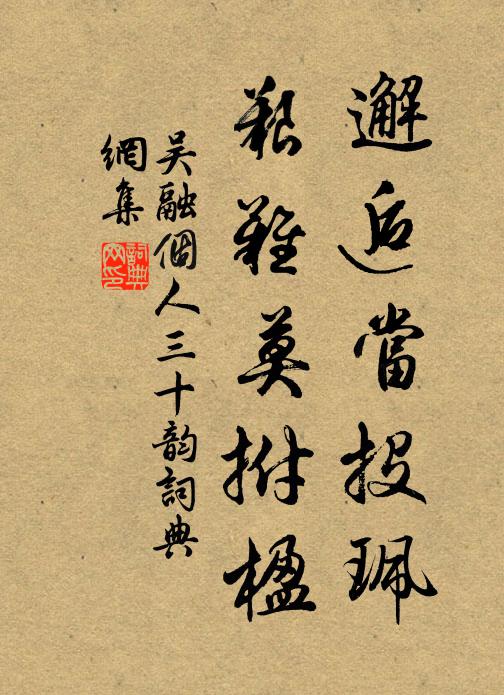 邂逅當投珮
艱難莫拊楹
吳融個人三十韵詞典
網集
詞典网印